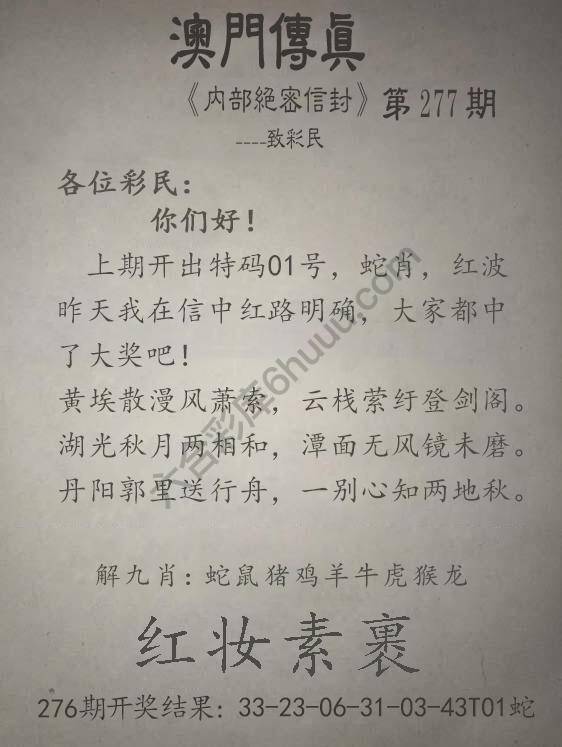 澳門傳眞
《内部絕密信封》第277期
----致彩民
各位彩民：
你们好！
上期开出特码01号，蛇肖，红波
昨天我在信中红路明确，大家都中
了大奖吧！
黄埃散漫风萧索，云栈萦纡登剑阁。
湖光秋月两相和，潭面无风镜未磨。
丹阳郭里送行舟，一别心知两地秋。
解九肖：蛇鼠猪鸡羊牛虎猴龙
红妆素裹
276期开奖结果：33-23-06-31-03-43T01蛇
六合彩库6huuu.com